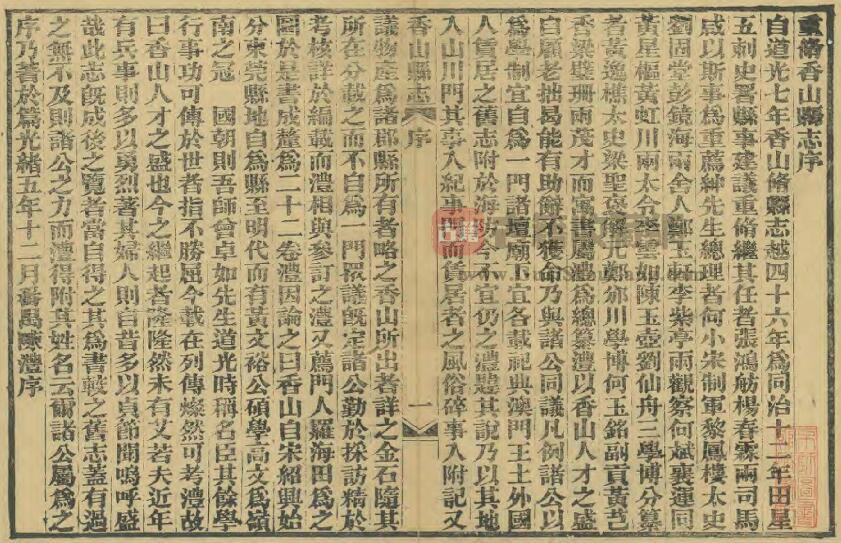 重脩香山縣志序
自道光七年香山脩縣志越四十六年為同治十二年田星
五刺史署縣事建議重脩繼其任者張鴻舫楊春霖兩司馬
咸以斯事為重薦紳先生總理者何小宋制軍黎鳳樓太史
劉固堂彭鏡海兩舍人鄭玉軒李紫亭兩觀察何斌襄運同
黃星樞黃虹川兩太令李雲如陳玉壺劉仙舟三學博分纂
者黃逸樵太史梁聖褒解元鄭邠川學博何玉銘副貢黃芑
香梁璧珊兩茂才而寓書屬澧為總纂澧以香山人才之盛
自顧老拙曷能有助辭不獲命乃與諸公同議凡例諸公以
為學制宜自為一門諸壇廟亦宜各載祀典澳門王土外國
人賃居之舊志附於海防今不宜仍之澧韙其說乃以其地
入山川門其事入紀事門而賃居者之風俗碎事入附記又
香山縣志 序 一
議物產為諸郡縣所有者略之香山所出者詳之金石隨其
所在分載之而不自為一門衆議既定諸公勤於採訪精於
考核詳於編載而澧相與參訂之澧又薦門人羅海田為之
圖於是書成釐為二十二卷澧因論之曰香山自宋紹興始
分東莞縣地自為縣至明代而有黃文裕公碩學高文為嶺
南之冠 國朝則吾師曾卓如先生道光時稱名臣其餘學
行事功可傳於世者指不勝屈今載在列傳燦然可考澧故
曰香山人才之盛也今之繼起者隆隆然未有艾若夫近年
有兵事則多以勇烈著其婦人則自昔多以貞節聞嗚呼盛
哉此志既成後之覽者當自得之其為書較之舊志蓋有過
之無不及則諸公之力而澧得附其姓名云爾諸公屬為之
序乃著於篇光緒五年十二月番禺陳澧序
古籍